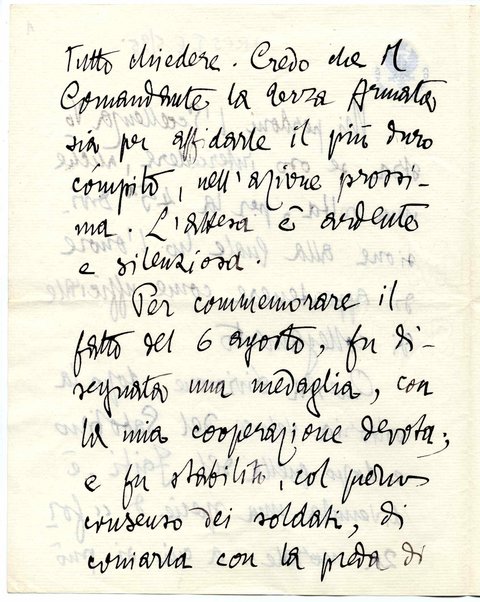 tutto chiedere. Credo che il
Comandante la terza Armata
sia per affidarle il più duro
cómpito, nell'azione prossi-
ma. L'attesa è ardente
e silenziosa.
Per commemorare il
fatto del 6 agosto, fu di-
segnata una medaglia, con
la mia cooperazione devota;
e fu stabilito, col pieno
consenso dei soldati, di
coniarla con la preda di